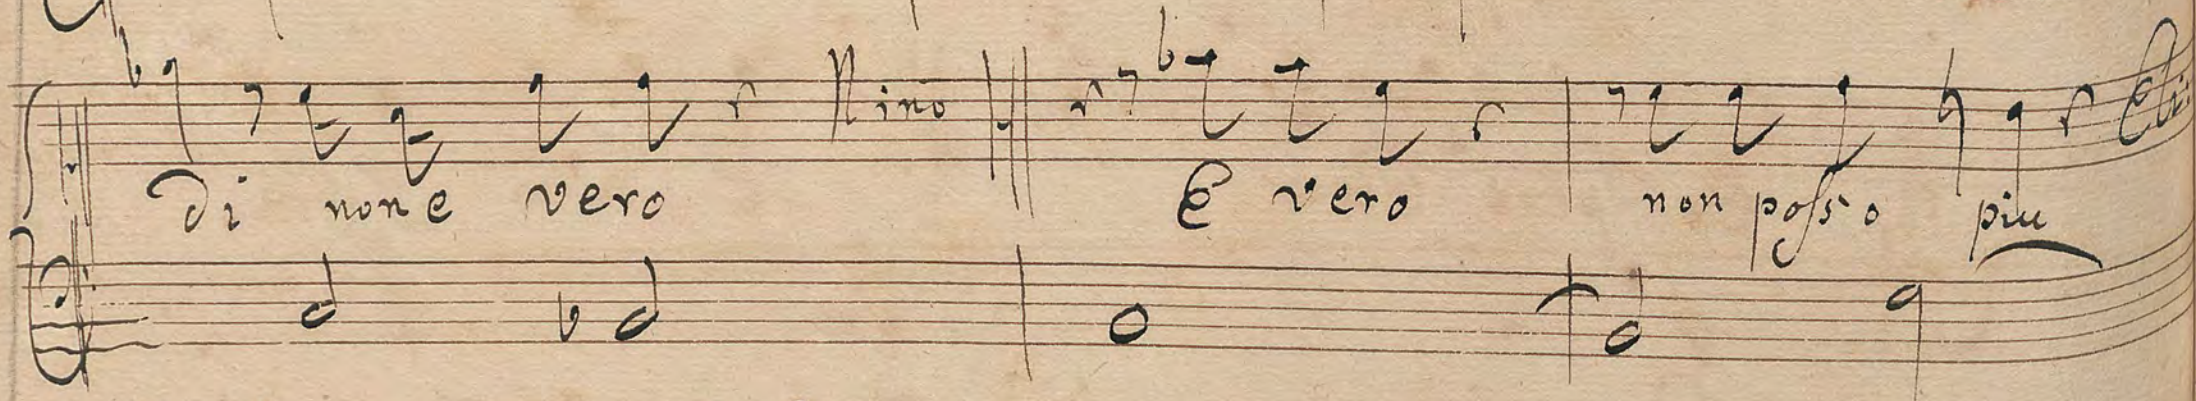 Nino
di non e vero E vero non posso piu